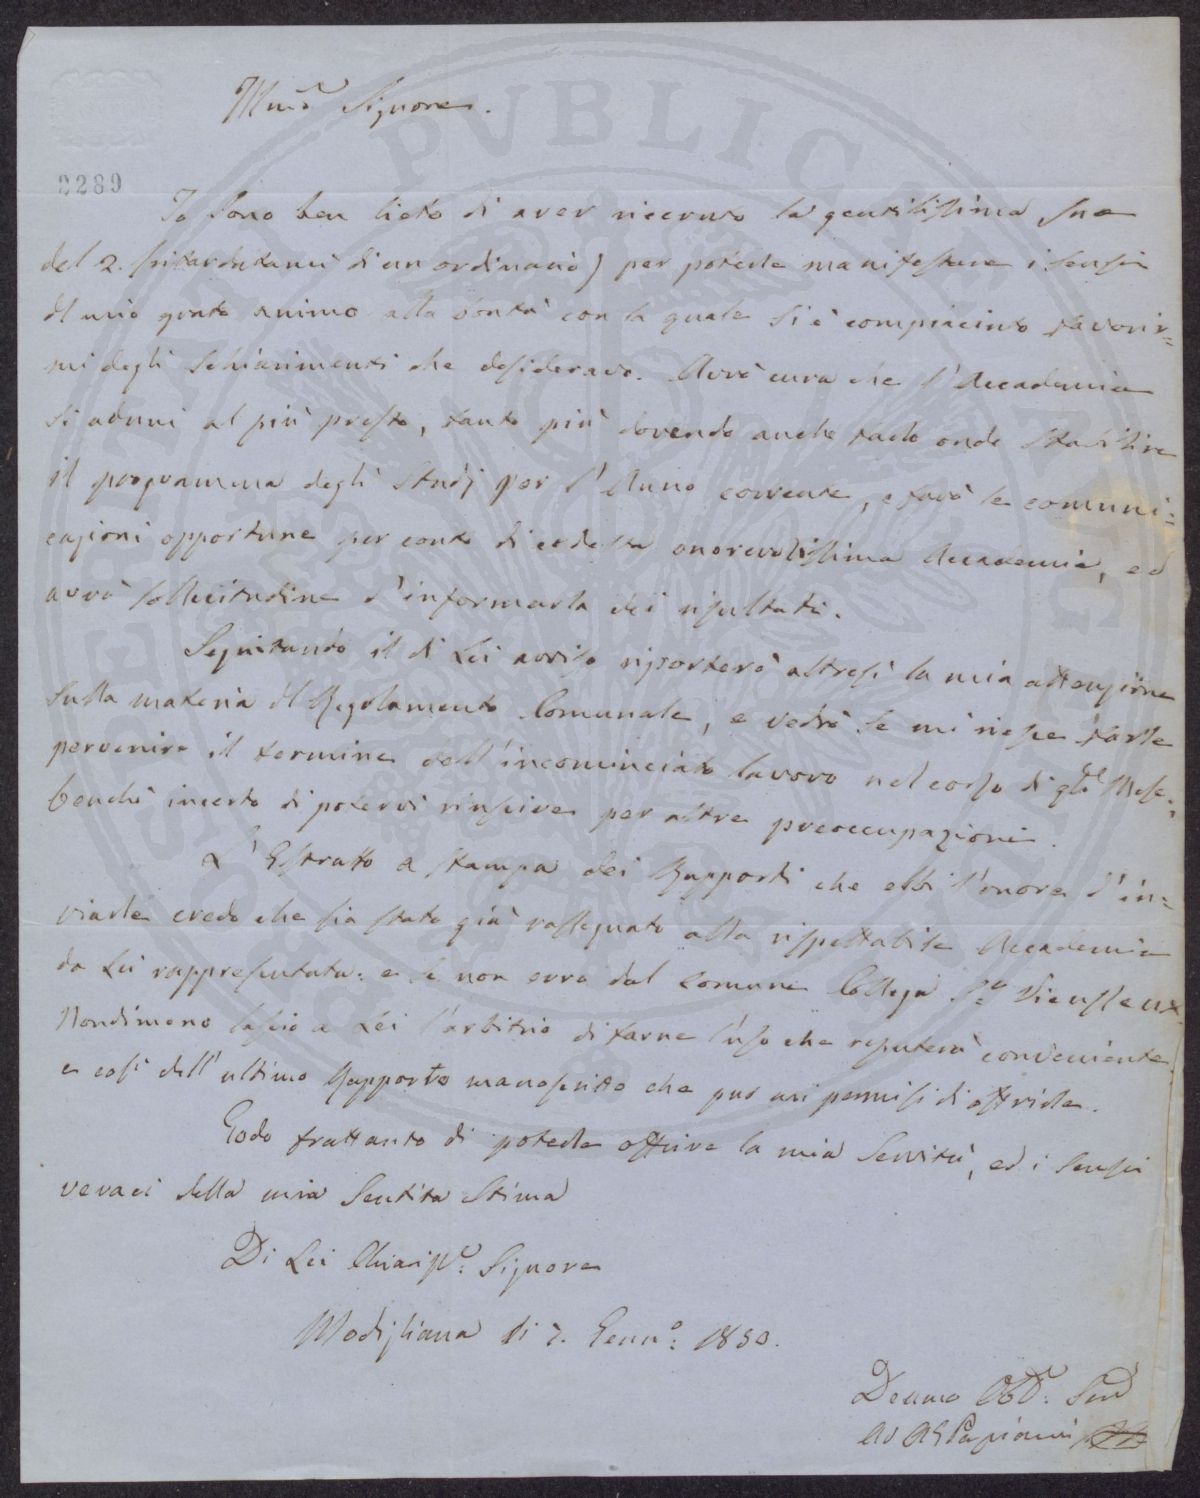 Signore.
2289
Io sono ben lieto di aver ricevuto la gentilissima Sua
del 2. (ritardatami di un ordinario) per poterle manifestare i sensi
del mio grato animo alla bontà con la quale si è compiaciuto favorir=
mi degli schiarimenti che desiderava. Avrò cura che l'Accademia
si aduni al più presto, tanto più dovendo anche farlo onde stabilire
il programma degli studj per l'Anno corrente, e farò le comuni=
cazioni opportune per conto di codesta onorevolissima Accademia, ed
avrò sollecitudine d'informarla dei risultati.
Seguitando il di Lei avviso riporterò altresì la mia attenzione
sulla materia del Regolamento Comunale, e vedrò se mi riesce farle
pervenire il termine dell'incominciato lavoro nel corso di qto Mese,
benchè incerto di potervi riuscire per altre preoccupazioni.
L'Estratto a stampa dei Rapporti che ebbi l'onore d'in=
viarle credo che sia stato già rassegnato alla rispettabile Accademia
da Lei rappresentata: e se non erro dal comune Collega Sr Vieusseux.
Nondimeno lascio a Lei l'arbitrio di farne l'uso che reputerà conveniente
e così dell'ultimo Rapporto manoscritto che pur mi permisi di offrirle.
Godo frattanto di poterle offrire la mia servitù, ed i sensi
veraci della mia sentita stima
Di Lei Chiarissº: Signore
Modigliana li 7. Gennº: 1850.
Devmo Obbº: Serv
Papiani
PVBLICAE
PROSPERITATI
AVGENDAE